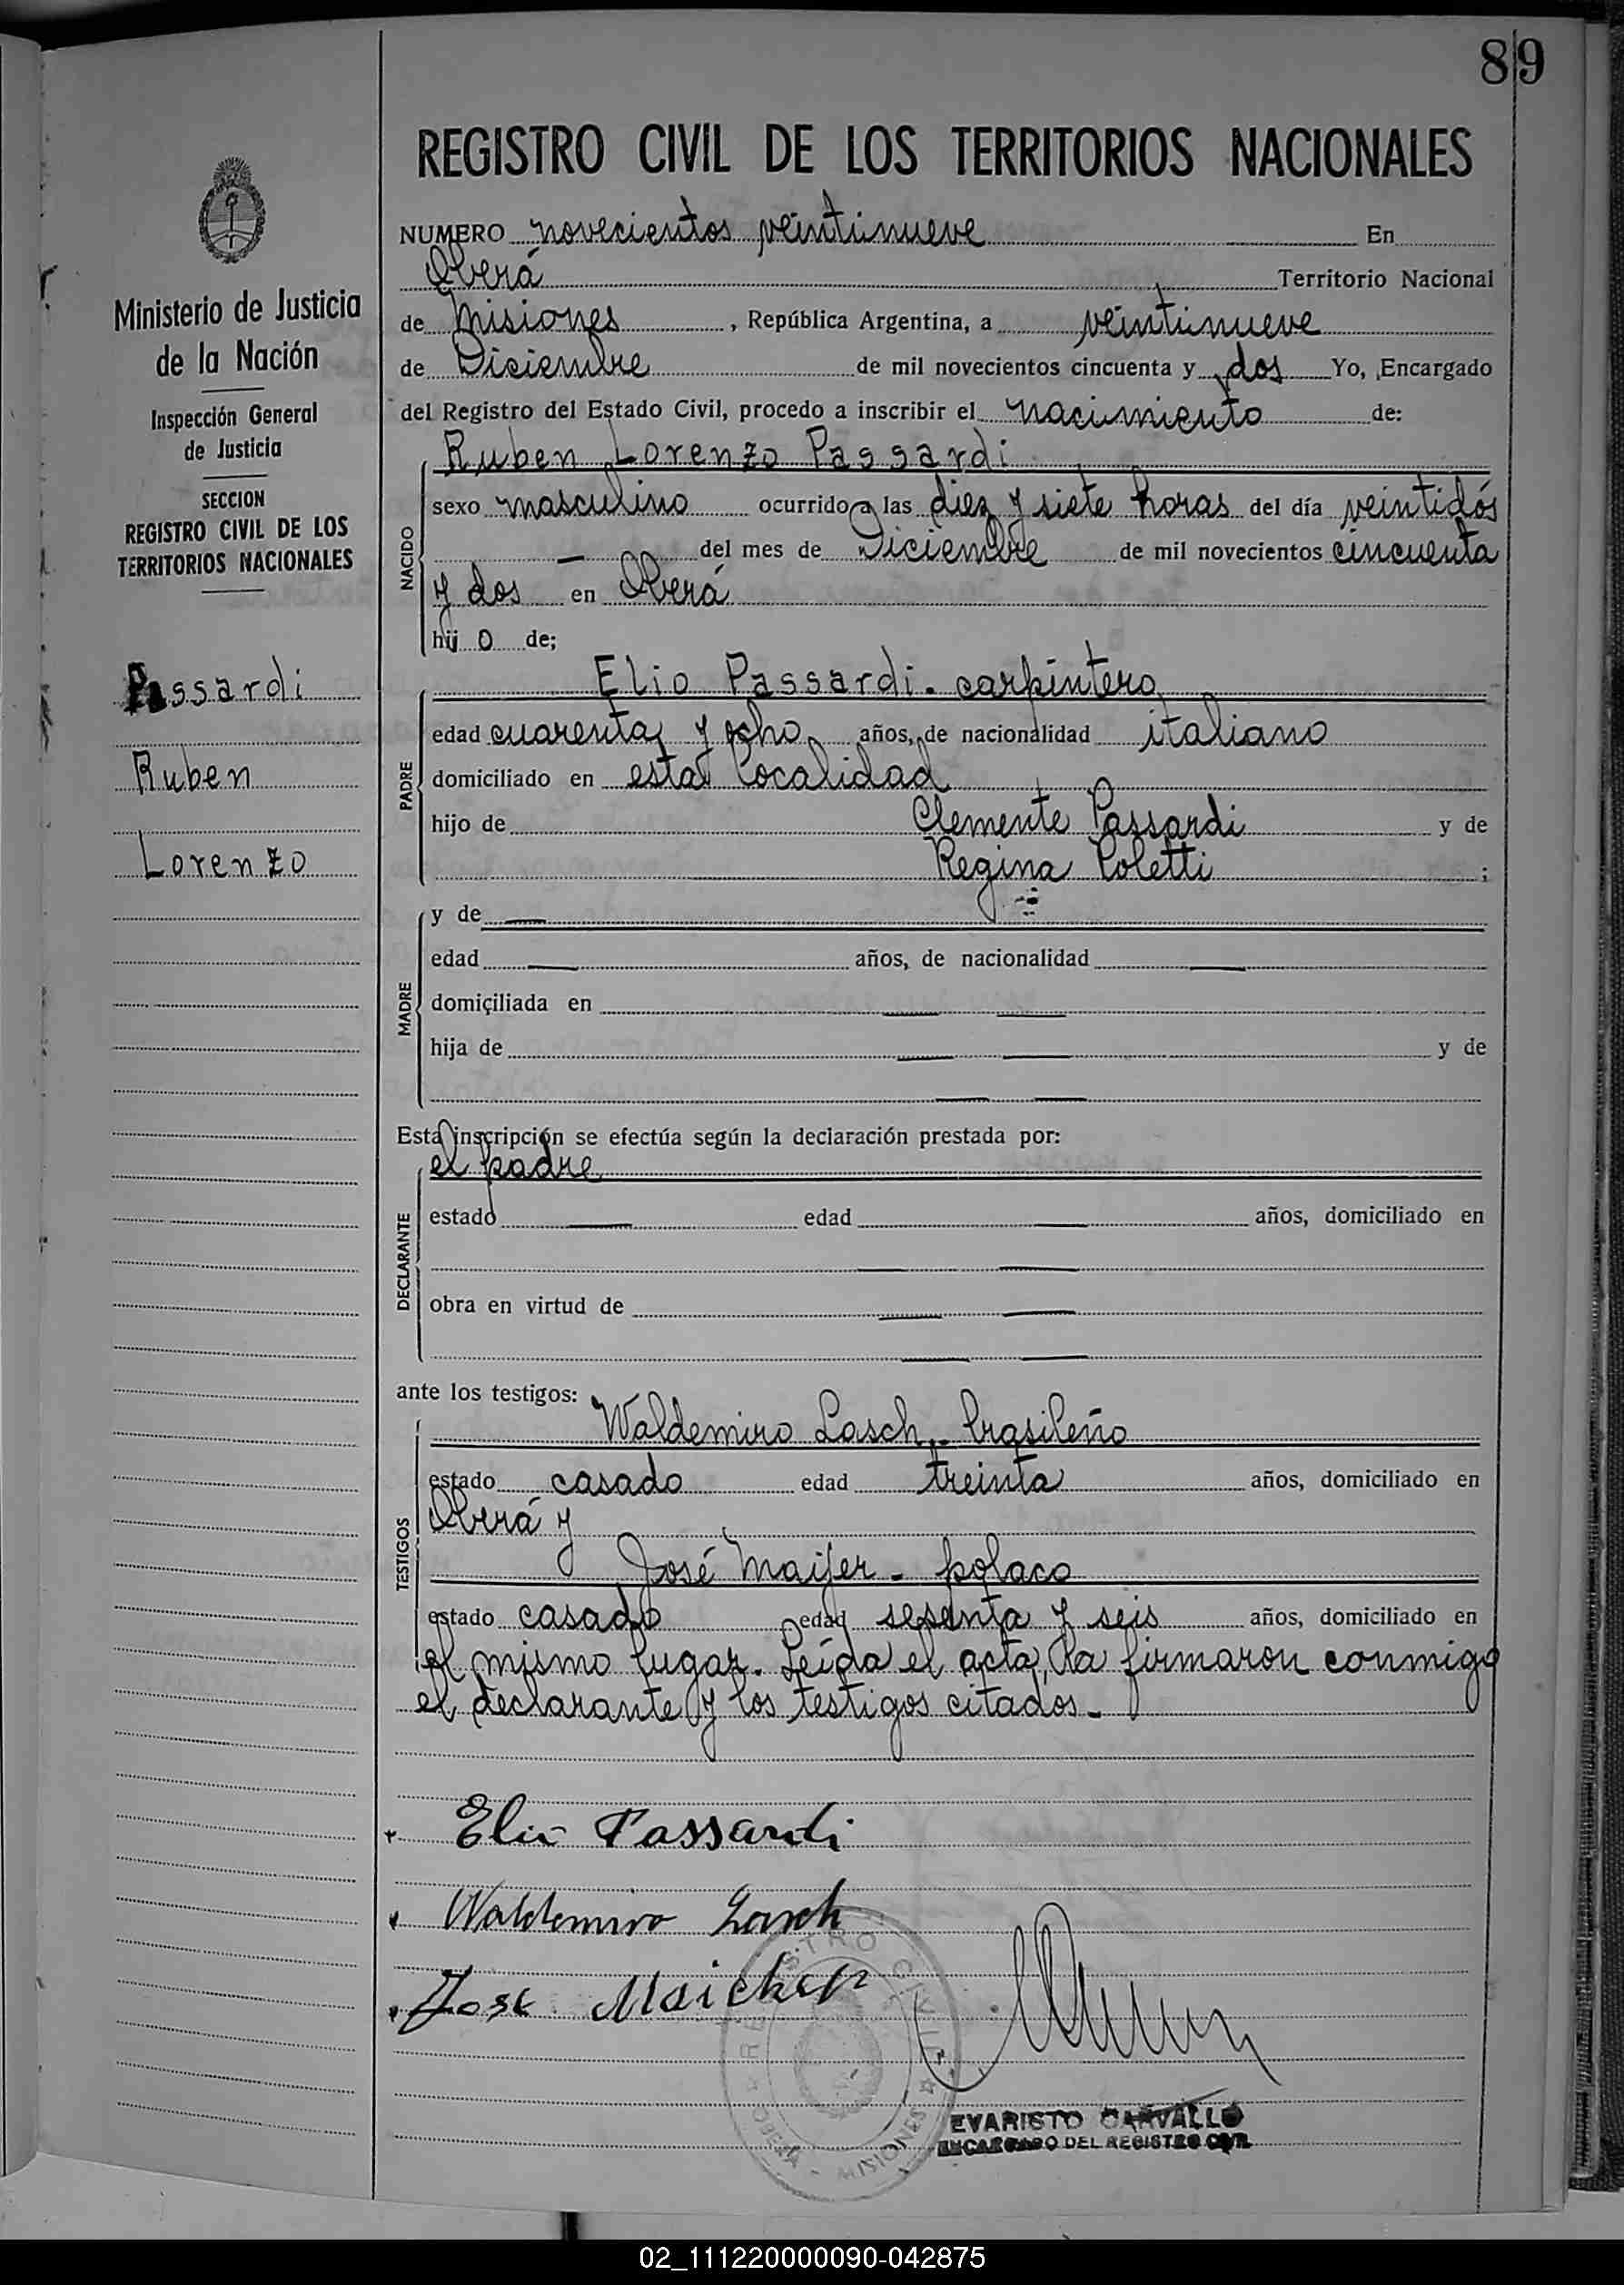 89
REGISTRO CIVIL DE LOS TERRITORIOS NACIONALES
Ministerio de Justicia
de la Nación
Inspección General
de Justicia
SECCION
REGISTRO CIVIL DE LOS
TERRITORIOS NACIONALES
Passardi
Ruben
Lorenzo
NUMERO novecientos veintinueve En
Oberá Territorio Nacional
de Misiones, República Argentina, a veintinueve
de Diciembre de mil novecientos cincuenta y dos Yo, Encargado
del Registro del Estado Civil, procedo a inscribir el nacimiento de:
Ruben Lorenzo Passardi
NACIDO
sexo masculino ocurrido a las diez y siete horas del día veintidós
— del mes de Diciembre de mil novecientos cincuenta
y dos en Oberá
hij o de;
Elio Passardi. carpintero
PADRE
edad cuarenta y ocho años, de nacionalidad italiano
domiciliado en esta localidad
hijo de Clemente Passardi y de
Regina Poletti ;
MADRE
y de —
edad — años, de nacionalidad —
domiciliada en — —
hija de — — y de
— —
Esta inscripción se efectúa según la declaración prestada por:
el padre
DECLARANTE
estado — edad — años, domiciliado en
— —
obra en virtud de — —
— —
ante los testigos:
Waldemiro Lasch - brasileño
TESTIGOS
estado casado edad treinta años, domiciliado en
Oberá y
José Maijer - polaco
estado casado edad sesenta y seis años, domiciliado en
el mismo lugar. Leída el acta, la firmaron conmigo
el declarante y los testigos citados.-
Elio Passardi
Waldemiro Lasch
Jose Maicher
REGISTRO CIVIL
OBERA - MISIONES
EVARISTO CARVALLO
ENCARGADO DEL REGISTRO CIVIL
02_111220000090-042875